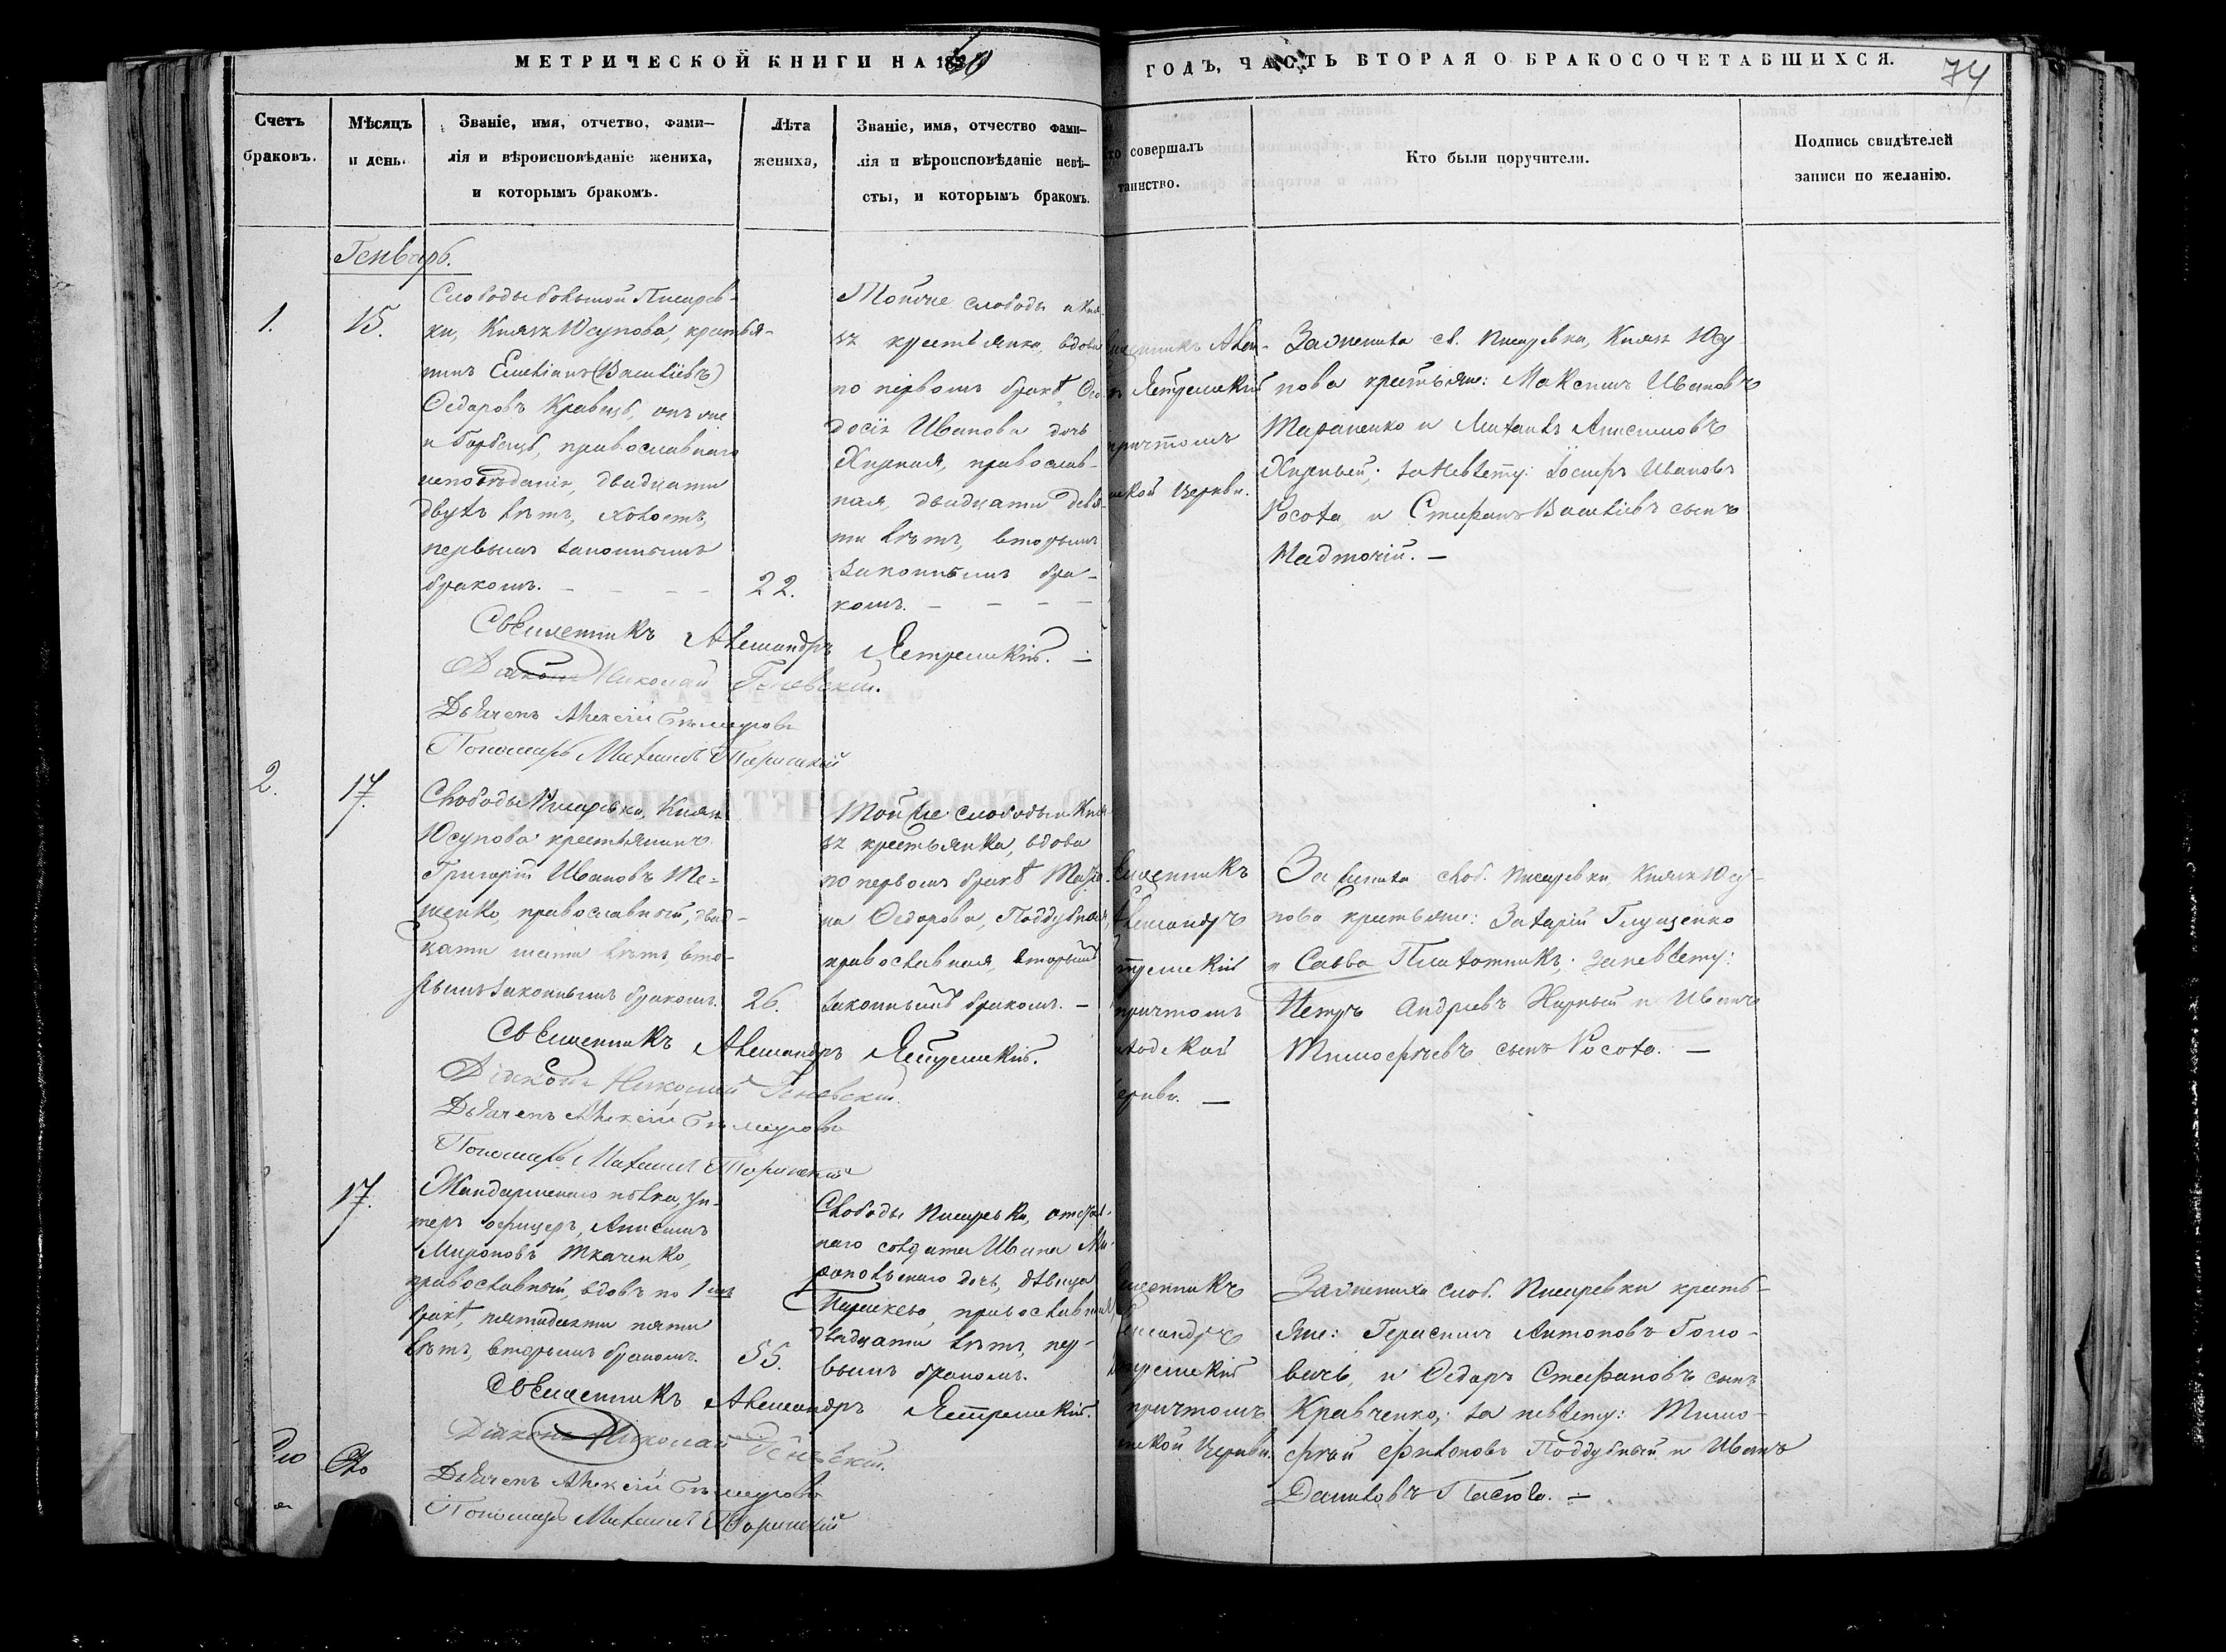 МЕТРИЧЕСКОЙ КНИГИ НА 1860
ГОДЪ, ЧАСТЬ ВТОРАЯ О БРАКОСОЧЕТАВШИХСЯ.
74
Счетъ
браковъ.
Мѣсяцъ
и день.
Званіе, имя, отчетво, фами–
лія и вѣроисповѣданіе жениха,
и которымъ бракомъ.
Лѣта
жениха,
Званіе, имя, отчество фами–
лія и вѣроисповѣданіе невѣ–
сты, и которымъ бракомъ.
то совершалъ
таинство.
Кто были поручители.
Подпись свидѣтелей
записи по желанію.
Генварь.
1.
15.
Слободы большой Писарев-
ки, Князя Юсупова, крестья-
нинъ Емеліанъ (Василіевъ)
Ѳедоровъ Кравецъ, онъ же
и Горбецъ, православнаго
исповѣданія, двадцати
двухъ лѣтъ, холостъ,
первымъ законнымъ
бракомъ.
22.
Той же слободы и Кня-
зя крестьянка, вдова
по первомъ бракѣ, Ѳео-
досія Иванова дочь
Жирная, православ-
ная, двадцати девя-
ти лѣтъ, вторымъ
законнымъ бра-
комъ.
щенникъ Алек-
Ястремскій
причтомъ
ской Церкви.
За жениха сл. Писаревки, Князя Юсу-
пова крестьяне: Максимъ Ивановъ
Тараненко и Михаилъ Анисимовъ
Жирный; за невѣсту: Іосифъ Ивановъ
Росоха, и Стефанъ Василіевъ сынъ
Надточій. —
Священникъ Александръ Ястремскій. —
Діаконъ Николай
Дьячекъ Алексій
Пономарь Михаилъ
2.
17.
Слободы Писаревки, Князя
Юсупова крестьянинъ
Григорій Ивановъ Те-
щенко, православный, двад-
цати шести лѣтъ, вто-
рымъ законнымъ бракомъ.
26.
Той же слободы и Кня-
зя крестьянка, вдова
по первомъ бракѣ
на Ѳедорова, Поддубная,
православная, вторымъ
законнымъ бракомъ. —
щенникъ
Александръ
стремскій
причтомъ
ской
еркви. —
За жениха слоб. Писаревки, Князя Юсу-
пова крестьяне: Захарій Глущенко
и Савва Плахотникъ; за невѣсту:
Петръ Андреевъ Жирный и Иванъ
Тимоѳѣевъ сынъ Росоха. —
Священникъ Александръ Ястремскій.
Діаконъ Николай
Дьячекъ Алексій
Пономарь Михаилъ
17.
Жандармскаго полка, ун-
теръ офицеръ, Анисимъ
Мироновъ Ткаченко,
православный, вдовъ по 1мъ
бракѣ, пятидесяти пяти
лѣтъ, вторымъ бракомъ.
55.
Слободы Писаревки, отстав-
наго солдата Ивана Ми-
дочь, дѣвица
православная,
двадцати лѣтъ, пер-
вымъ бракомъ.
щенникъ
лександръ
стремскій
причтомъ
ской Церкви.
За жениха слоб. Писаревки кресть-
яне: Герасимъ Антоновъ Голо-
вачь, и Ѳедоръ Стефановъ сынъ
Кравченко; за невѣсту: Тимо-
ѳѣй Филоновъ Поддубный и Иванъ
Даниловъ —
Священникъ Александръ Ястремскій.
Діаконъ Николай
Дьячекъ Алексій
Пономарь Михаилъ